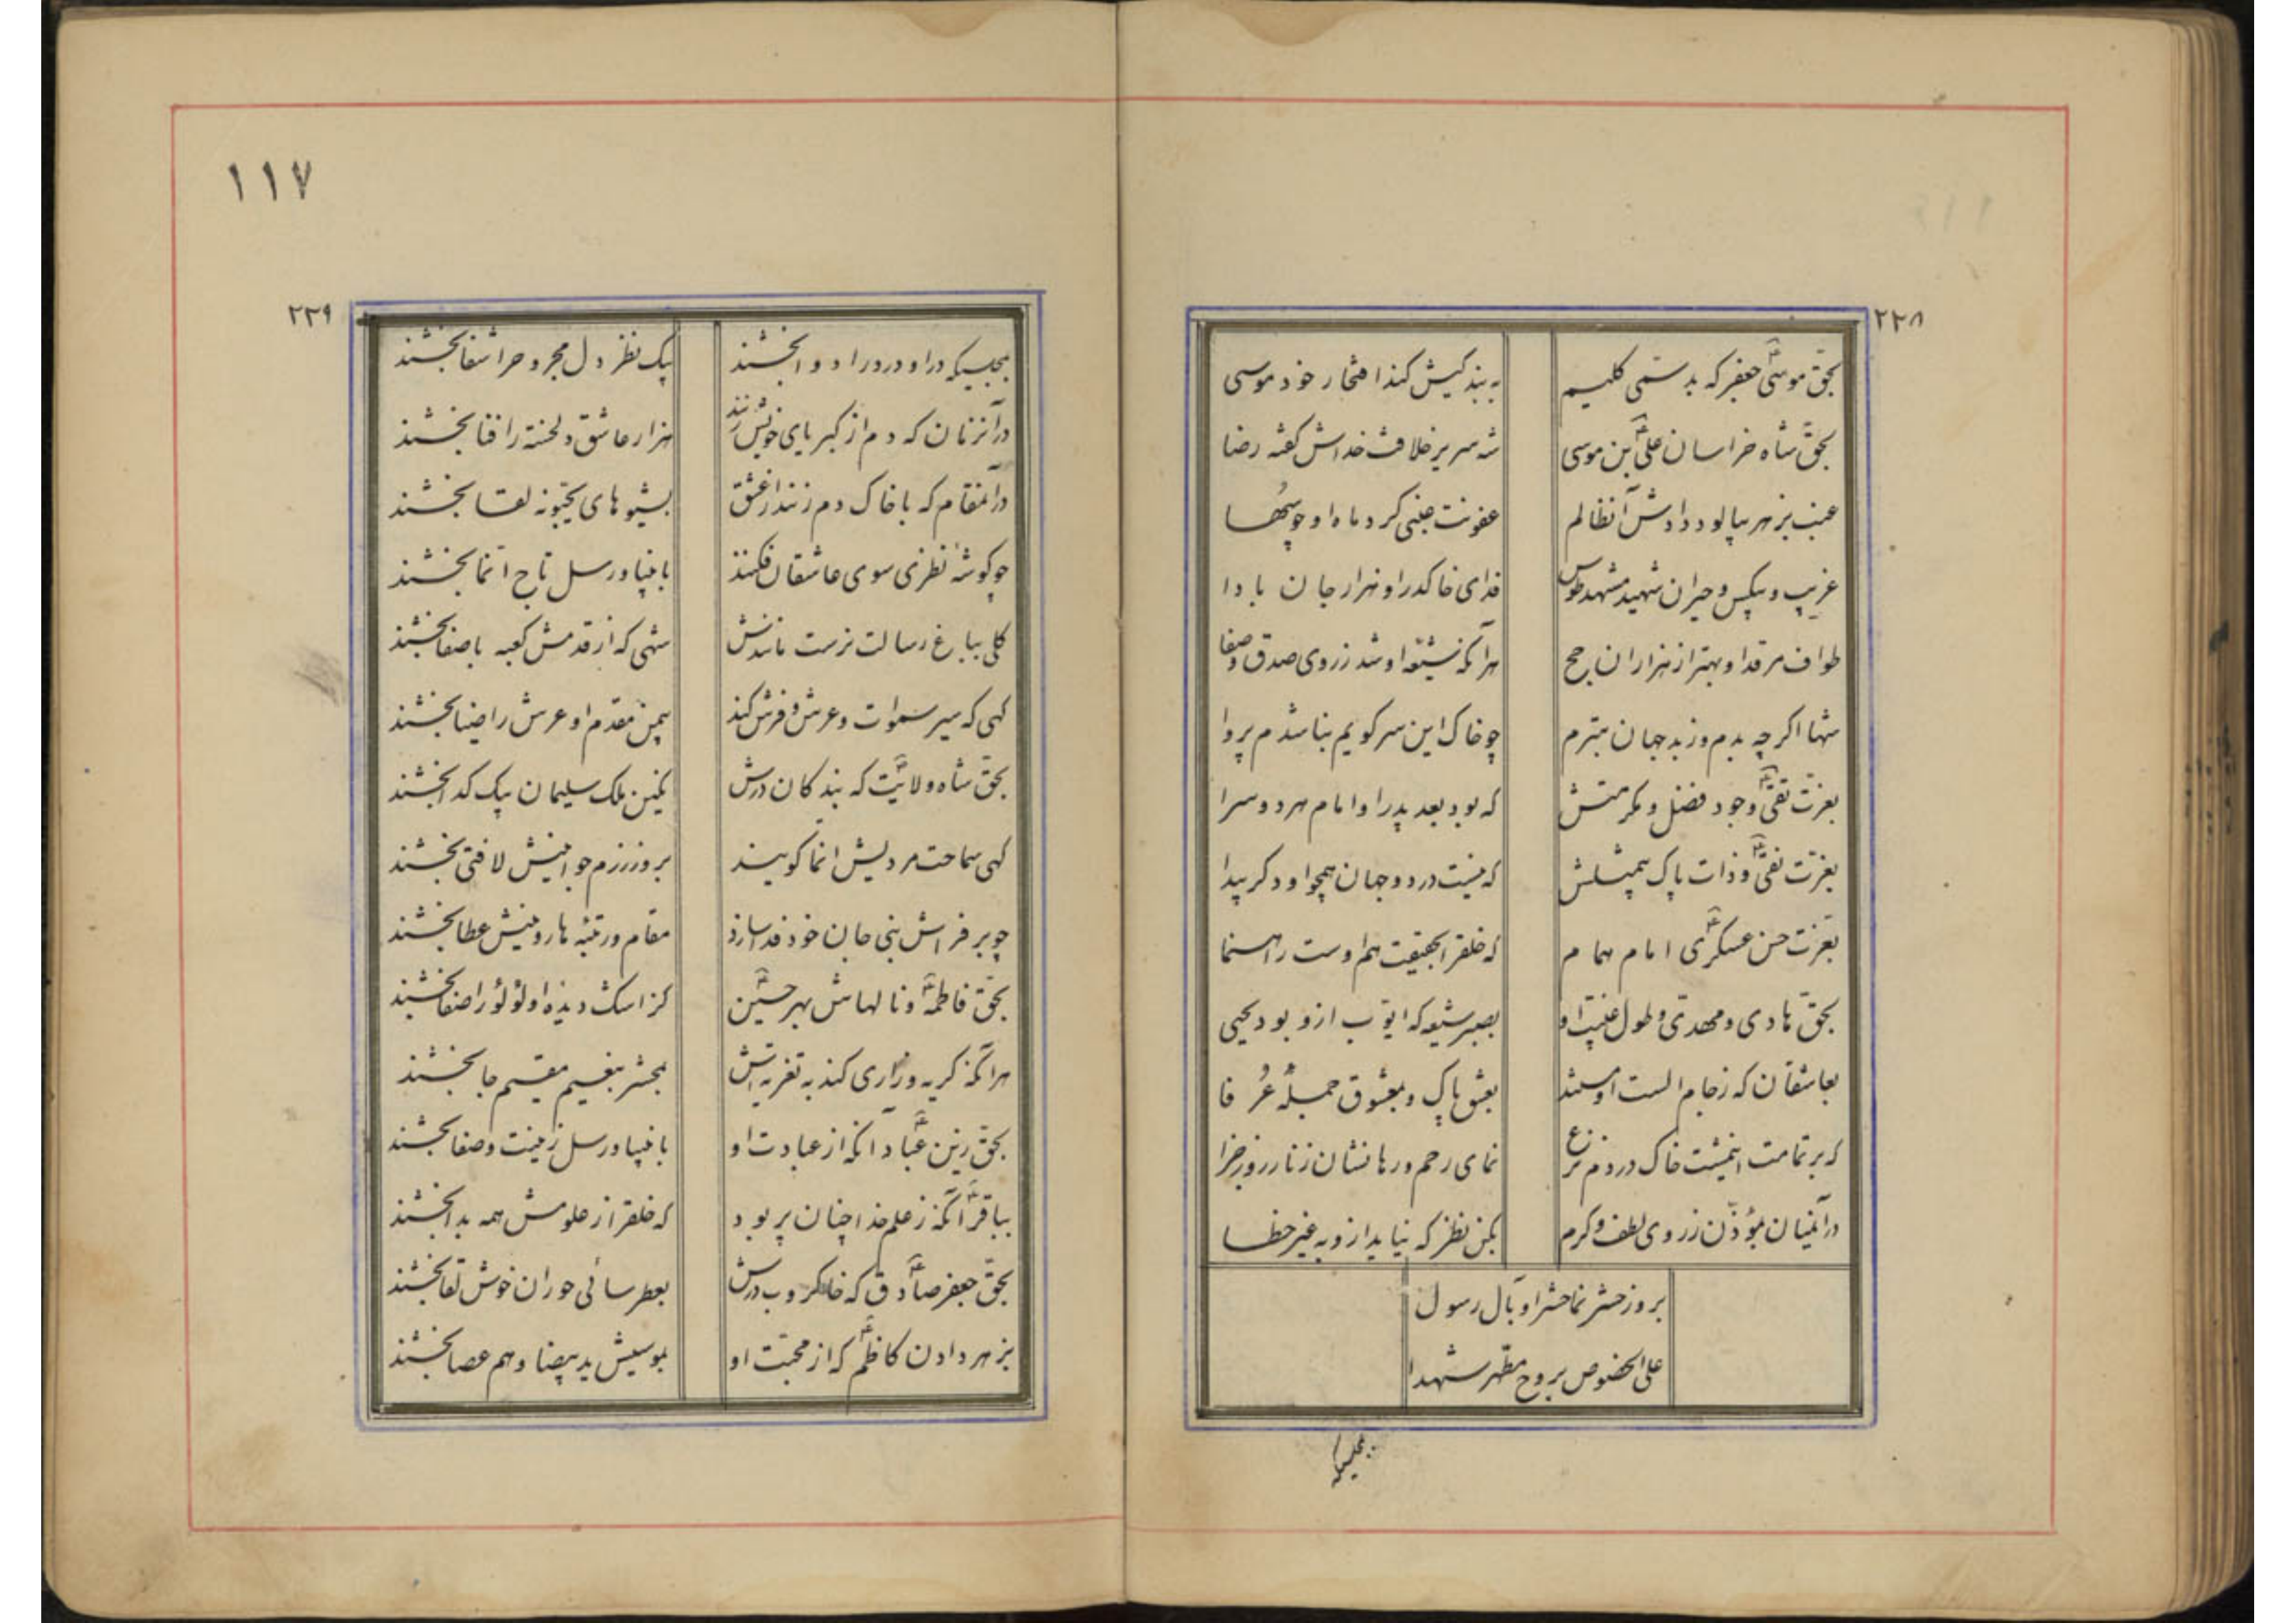 ۲۲۸
بحق موسی جعفر که بد سمی کلیم
به بندکیش کند افتخار خود موسی
بحق شاه خراسان علی بن موسی
شه سریر خلافت خداش کفته رضا
عنب بزهر بیالود دادش آنظالم
عفونت عنبی کرد ماه او چو سها
غریب و بیکس و حیران شهید مشهد طوس
فدای خاکدر او هزار جان بادا
طواف مرقد او بهتر از هزاران حج
هرآنکه شیعه او شد ز روی صدق و صفا
شها اکرچه بدم وز بد جهان بترم
چو خاک این سر کویم بناشدم پروا
بعزت تقی وجود فضل و مکرمتش
که بود بعد پدر او امام هر دو سرا
بعزت نقی و ذات پاک بیمثلش
که نیست در دو جهان همچو او دکر پیدا
بعزت حسن عسکری امام همام
که خلقرا بحقیقت هم اوست راهنما
بحق هادی و مهدی و طول غیبت او
بصبر شیعه که ایوب ازو بود یحیی
بعاشقان که ز جام الست اومستند
بعشق پاک و بمعشوق جمله عرفا
که بر تمامت اینمشت خاک در دم نزع
نمای رحم و رهانشان ز نار روز جزا
در آنمیان بمؤذن ز روی لطف و کرم
بکن نظر که نیاید ازو به غیر خطا
بروز حشر نما حشر او بآل رسول
علی الخصوص بروح مطهر شهدا
بمجلسیکه
۱۱۷
۲۲۹
بمجلسیکه در او درد را دوا بخشند
بیک نظر دل مجروح را شفا بخشند
در آنزمان که دم از کبریای خویش زنند
هزار عاشق دلخسته را فنا بخشند
در آنمقام که با خاک دم زنند از عشق
بشیوهای یحبونه لقا بخشند
چو کوشه نظری سوی عاشقان فکنند
بانبیا و رسل تاج انما بخشند
کلی بباغ رسالت نرست مانندش
شهی که از قدمش کعبه با صفا بخشند
کهی که سیر سموات و عرش و فرش کند
بیمن مقدم او عرش را ضیا بخشند
بحق شاه ولایت که بندکان درش
نکین ملک سلیمان بیک کدا بخشند
کهی سماحت مردیش انما کویند
بروز رزم جوانیش لافتی بخشند
چو بر فراش نبی جان خود فدا سازد
مقام و رتبه هارونیش عطا بخشند
بحق فاطمه و نالهاش بهر حسین
کز اشک دیده او لؤلؤ را صفا بخشند
هرآنکه کریه و زاری کند به تعزیه اش
بحشر بنعیم مقیم جا بخشند
بحق زین عباد آنکه از عبادت او
بانبیا و رسل زینت و صفا بخشند
بباقر آنکه ز علم خدا چنان پر بود
که خلقرا ز علومش همه بدا بخشند
بحق جعفر صادق که خاکروب درش
بعطر سائی حوران خوش لقا بخشند
بزهر دادن کاظم که از محبت او
بموسیش ید بیضا و هم عصا بخشند